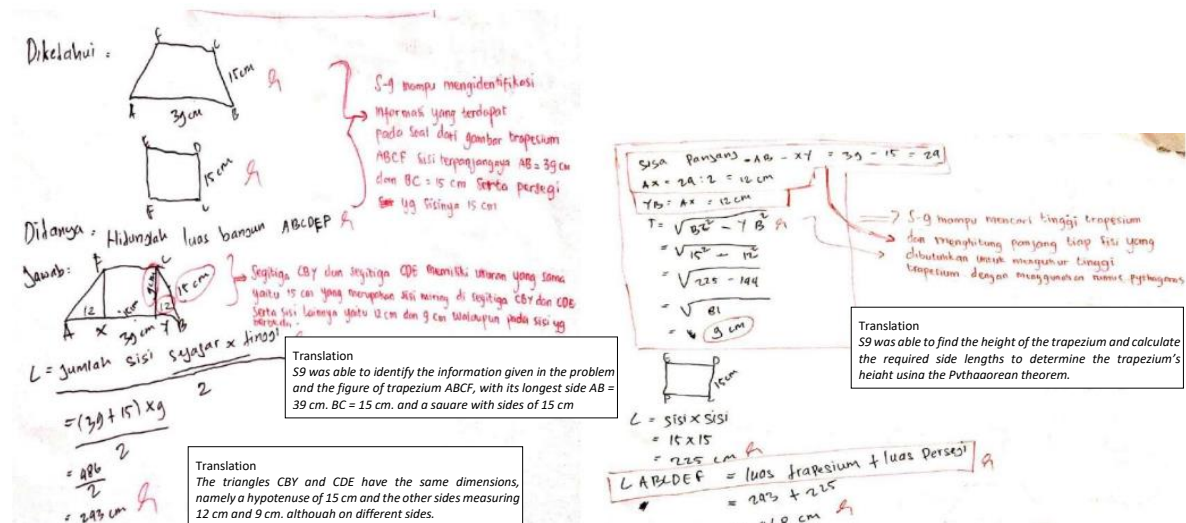 Diketahui :
F C
15 cm
A 39 cm B
E D
15 cm
F C
S-9 mampu mengidentifikasi
informasi yang terdapat
pada soal dari gambar trapesium
ABCF sisi terpanjangnya AB = 39 cm
dan BC = 15 cm serta persegi
yg sisinya 15 cm
Ditanya : Hitunglah luas bangun ABCDEF
Jawab:
15 cm
12 12
A X 39 cm Y B
Segitiga CBY dan segitiga CDE memiliki ukuran yang sama
yaitu 15 cm yang merupakan sisi miring di segitiga CBY dan CDE
serta sisi lainnya yaitu 12 cm dan 9 cm walaupun pada sisi yg
L = Jumlah sisi sejajar x tinggi
2
= (39 + 15) x 9
2
= 486
2
= 243 cm
Translation
S9 was able to identify the information given in the problem
and the figure of trapezium ABCF, with its longest side AB =
39 cm. BC = 15 cm. and a square with sides of 15 cm
Translation
The triangles CBY and CDE have the same dimensions,
namely a hypotenuse of 15 cm and the other sides measuring
12 cm and 9 cm. although on different sides.
Sisa panjang = AB - XY = 39 - 15 = 24
AX = 24 : 2 = 12 cm
YB = AX = 12 cm
T = √BC² - YB²
= √15² - 12²
= √225 - 144
= √81
= 9 cm
S-9 mampu mencari tinggi trapesium
dan menghitung panjang tiap sisi yang
dibutuhkan untuk mengukur tinggi
trapesium dengan menggunakan rumus pythagoras
Translation
S9 was able to find the height of the trapezium and calculate
the required side lengths to determine the trapezium's
height using the Pythagorean theorem.
E D
15 cm
L = sisi x sisi
= 15 x 15
= 225 cm
L ABCDEF = luas trapesium + luas persegi
= 243 + 225
cm